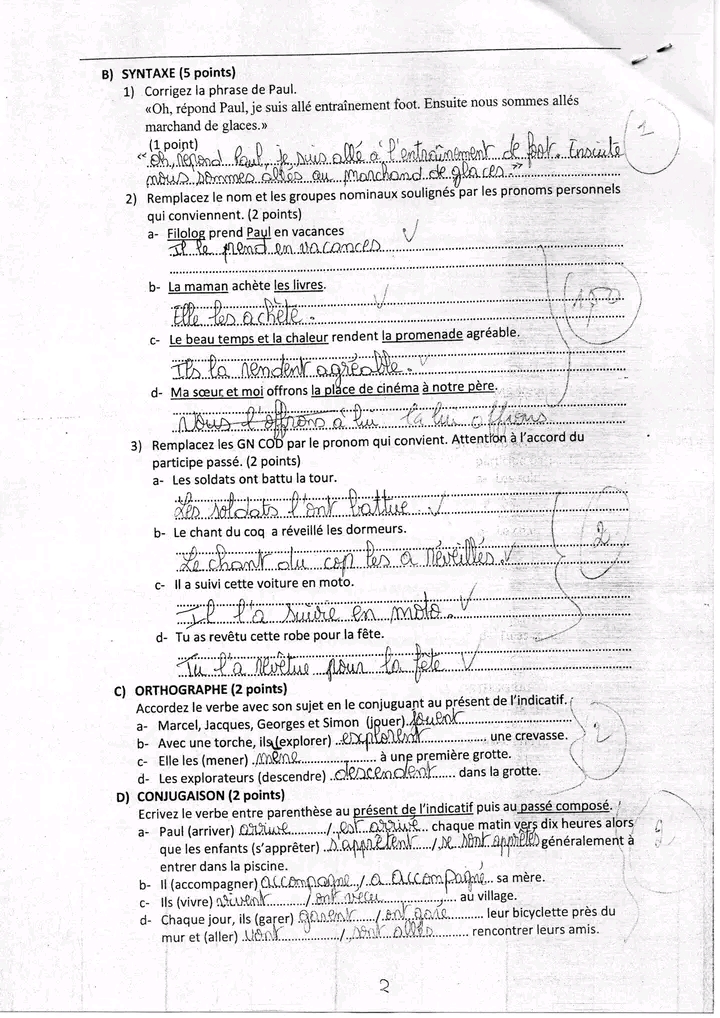 B) SYNTAXE (5 points)
1) Corrigez la phrase de Paul.
«Oh, répond Paul, je suis allé entraînement foot. Ensuite nous sommes allés
marchand de glaces.»
(1 point)
1
"Oh, repond Paul, je suis allé à l'entraînement de foot. Ensuite
nous sommes allés au marchand de glaces."
2) Remplacez le nom et les groupes nominaux soulignés par les pronoms personnels
qui conviennent. (2 points)
a- Filolog prend Paul en vacances
Il le prend en vacances
b- La maman achète les livres.
Elle les achète.
1,50
c- Le beau temps et la chaleur rendent la promenade agréable.
Ils la rendent agréable.
d- Ma sœur et moi offrons la place de cinéma à notre père.
Nous l'offrons à lui la lui offrons
3) Remplacez les GN COD par le pronom qui convient. Attention à l'accord du
participe passé. (2 points)
a- Les soldats ont battu la tour.
Les soldats l'ont battue
b- Le chant du coq a réveillé les dormeurs.
2
Le chant du cop les a réveillés.
c- Il a suivi cette voiture en moto.
Il l'a suivie en moto.
d- Tu as revêtu cette robe pour la fête.
Tu l'a revêtue pour la fête
C) ORTHOGRAPHE (2 points)
Accordez le verbe avec son sujet en le conjuguant au présent de l'indicatif.
a- Marcel, Jacques, Georges et Simon (jouer) jouent
b- Avec une torche, ils (explorer) explorent une crevasse.
2
c- Elle les (mener) mène à une première grotte.
d- Les explorateurs (descendre) descendent dans la grotte.
D) CONJUGAISON (2 points)
Ecrivez le verbe entre parenthèse au présent de l'indicatif puis au passé composé.
a- Paul (arriver) arrive / est arrivé chaque matin vers dix heures alors
que les enfants (s'apprêter) s'apprêtent / se sont apprêtés généralement à
2
entrer dans la piscine.
b- Il (accompagner) accompagne / a accompagné sa mère.
c- Ils (vivre) vivent / ont vécu au village.
d- Chaque jour, ils (garer) garent / ont garé leur bicyclette près du
mur et (aller) vont / sont allés rencontrer leurs amis.
2